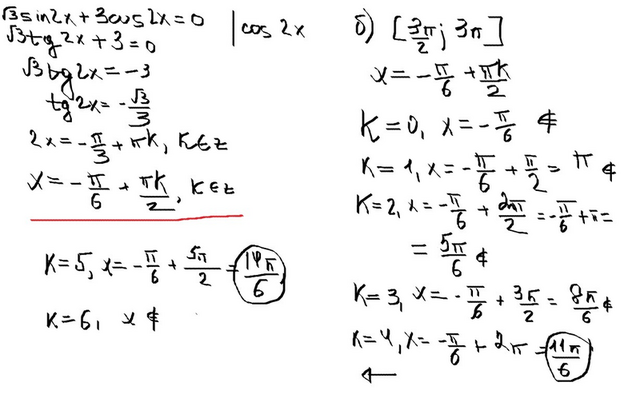 √3 sin 2x + 3cos 2x = 0 | cos 2x
√3 tg 2x + 3 = 0
√3 tg 2x = -3
tg 2x = -√3/3
2x = -π/3 + πK, K∈Z
x = -π/6 + πK/2, K∈Z
K=5, x = -π/6 + 5π/2 = 14π/6
K=6, x ∉
б) [3π/2; 3π]
x = -π/6 + πK/2
K=0, x = -π/6 ∉
K=1, x = -π/6 + π/2 = π ∉
K=2, x = -π/6 + 2π/2 = -π/6 + π =
= 5π/6 ∉
K=3, x = -π/6 + 3π/2 = 8π/6 ∉
K=4, x = -π/6 + 2π = 11π/6
←